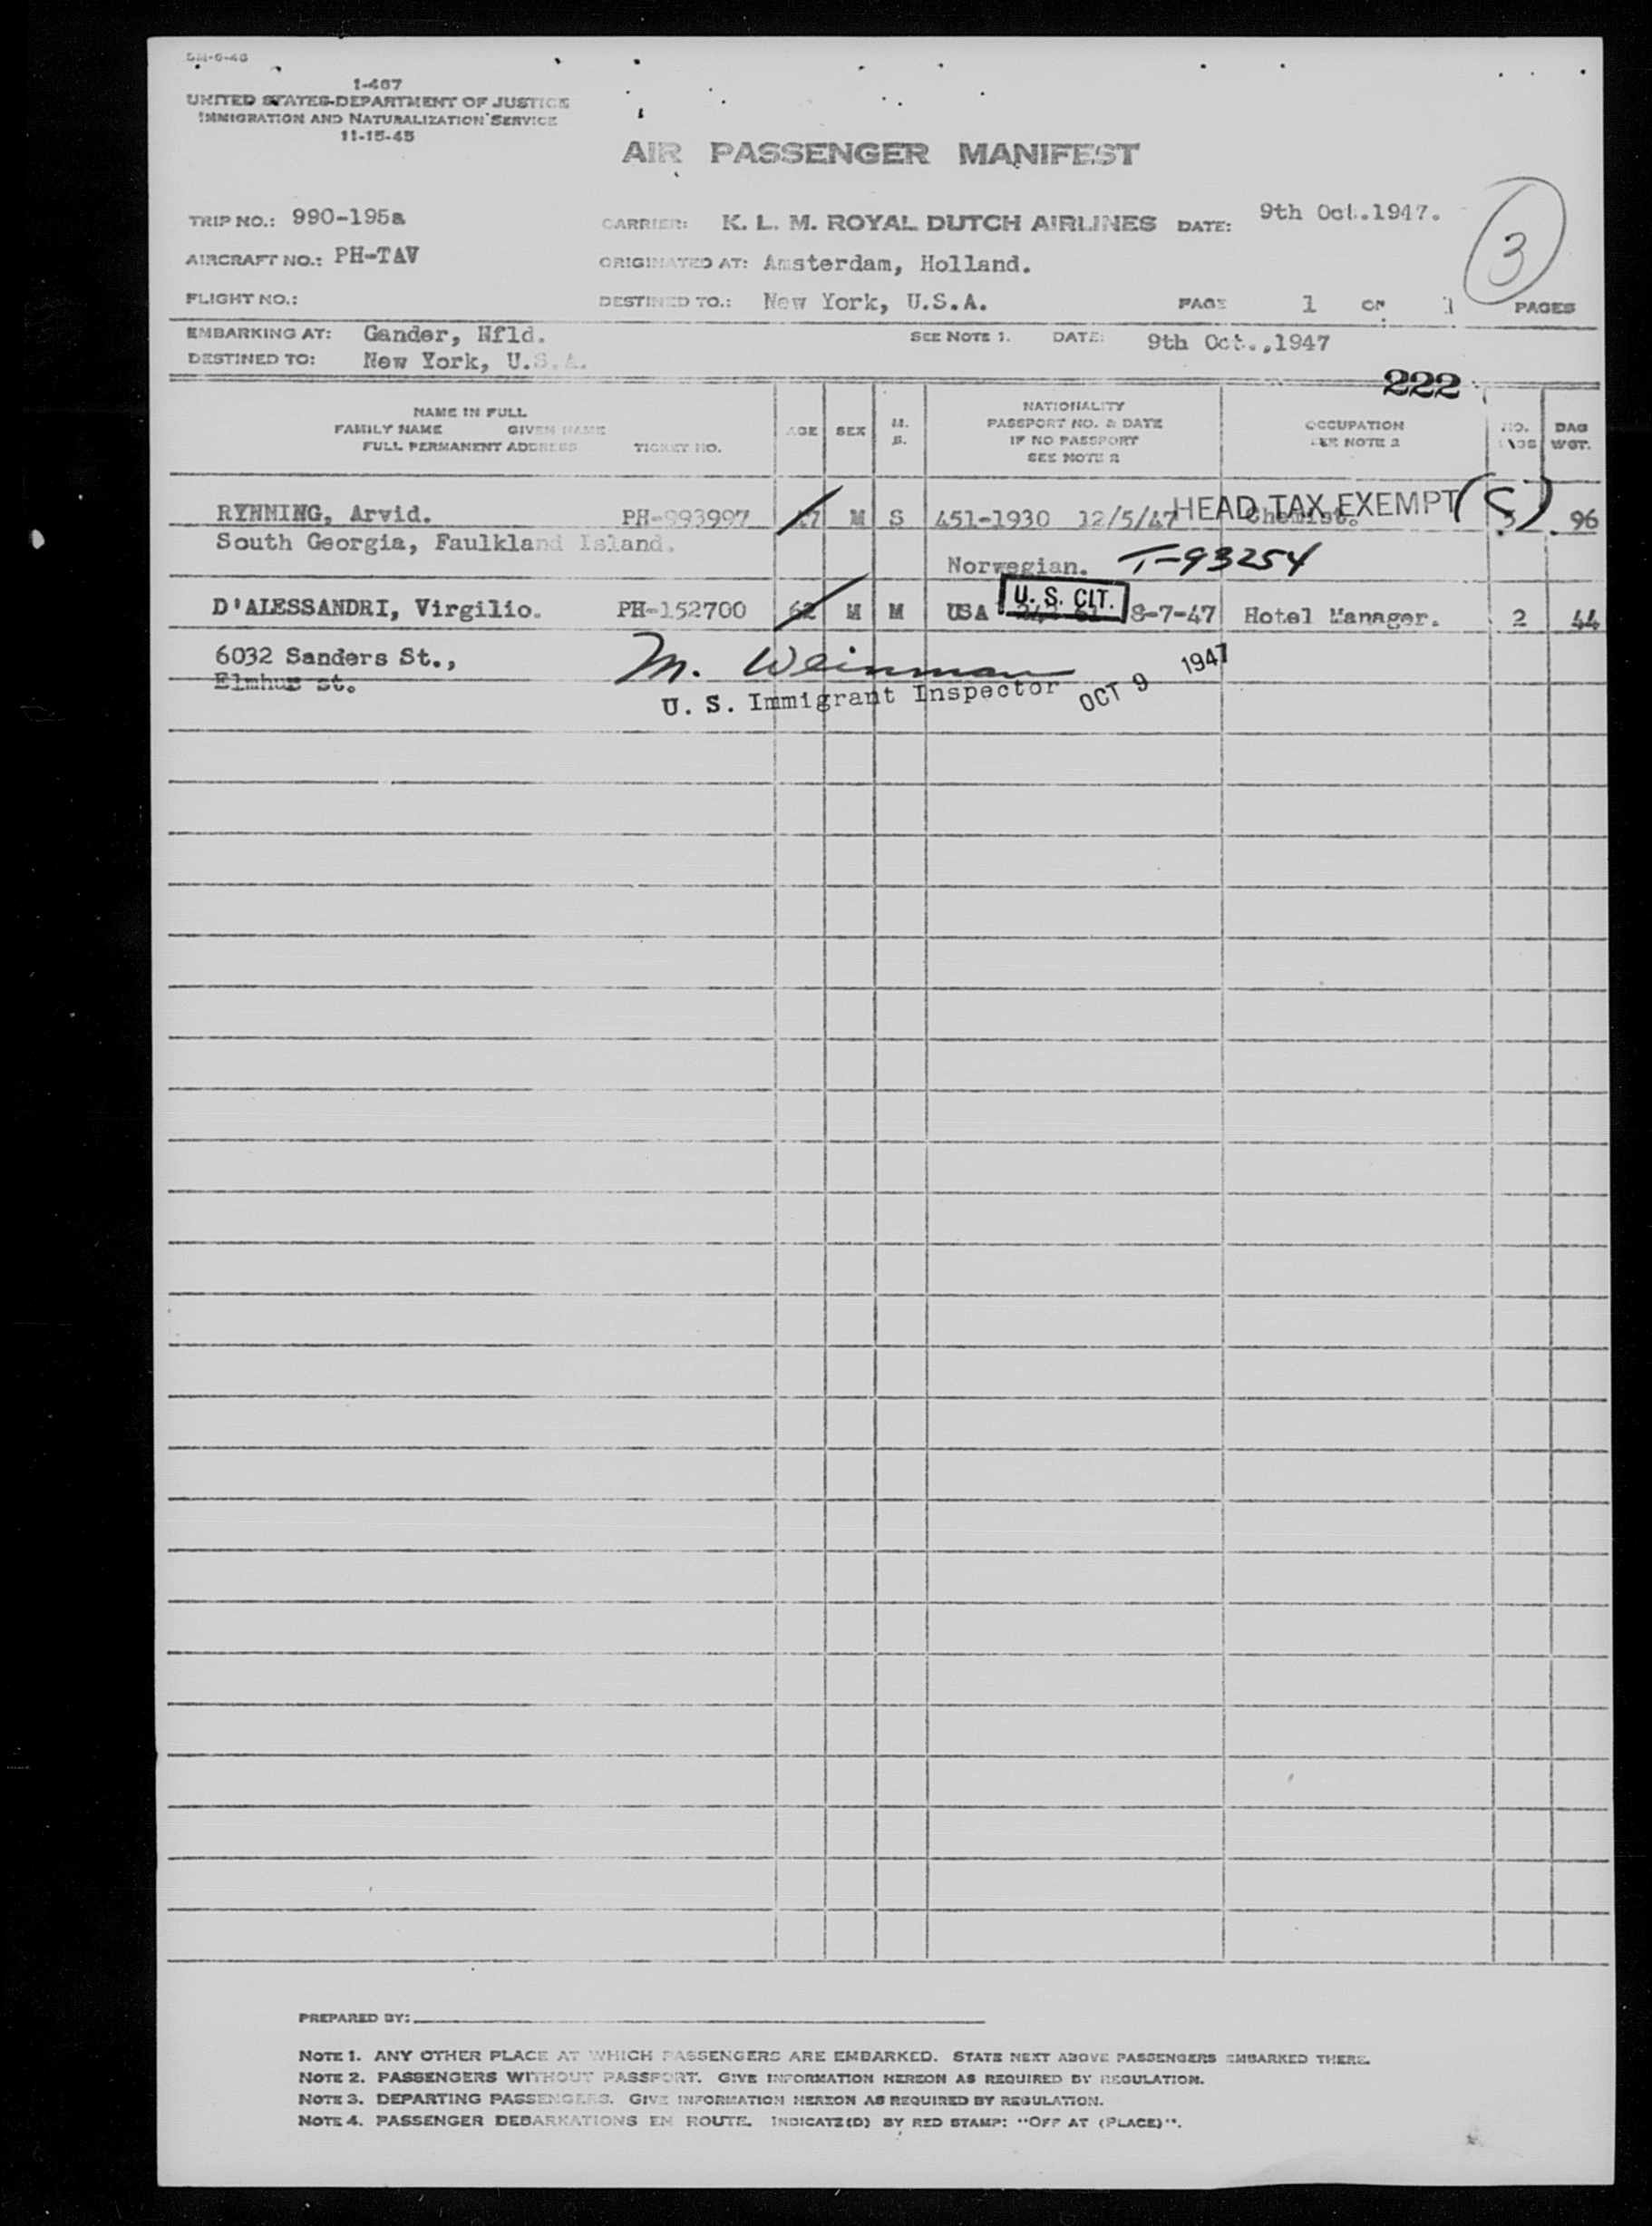 1-467
UNITED STATES-DEPARTMENT OF JUSTICE
IMMIGRATION AND NATURALIZATION SERVICE
11-15-45
AIR PASSENGER MANIFEST
TRIP NO.: 990-195a CARRIER: K. L. M. ROYAL DUTCH AIRLINES DATE: 9th Oct.1947.
3
AIRCRAFT NO.: PH-TAV ORIGINATED AT: Amsterdam, Holland.
FLIGHT NO.: DESTINED TO.: New York, U.S.A. PAGE 1 OF 1 PAGES
EMBARKING AT: Gander, Nfld. SEE NOTE 1. DATE: 9th Oct.,1947
DESTINED TO: New York, U.S.A.
222
NAME IN FULL
FAMILY NAME GIVEN NAME
FULL PERMANENT ADDRESS TICKET NO.
AGE SEX M. S.
NATIONALITY
PASSPORT NO. & DATE
IF NO PASSPORT
SEE NOTE 2
OCCUPATION
SEE NOTE 2
NO. BAG WGT.
RYNNING, Arvid. PH-993997 M S 451-1930 12/5/47 HEAD TAX EXEMPT (S) Chemist. 96
South Georgia, Faulkland Island.
Norwegian. T-93254
D'ALESSANDRI, Virgilio. PH-152700 62 M M USA U. S. CIT. 8-7-47 Hotel Manager. 2 44
6032 Sanders St.,
Elmhur st.
M. Weinman
U. S. Immigrant Inspector OCT 9 1947
PREPARED BY:
NOTE 1. ANY OTHER PLACE AT WHICH PASSENGERS ARE EMBARKED. STATE NEXT ABOVE PASSENGERS EMBARKED THERE.
NOTE 2. PASSENGERS WITHOUT PASSPORT. GIVE INFORMATION HEREON AS REQUIRED BY REGULATION.
NOTE 3. DEPARTING PASSENGERS. GIVE INFORMATION HEREON AS REQUIRED BY REGULATION.
NOTE 4. PASSENGER DEBARKATIONS EN ROUTE. INDICATE(D) BY RED STAMP: "OFF AT (PLACE)".